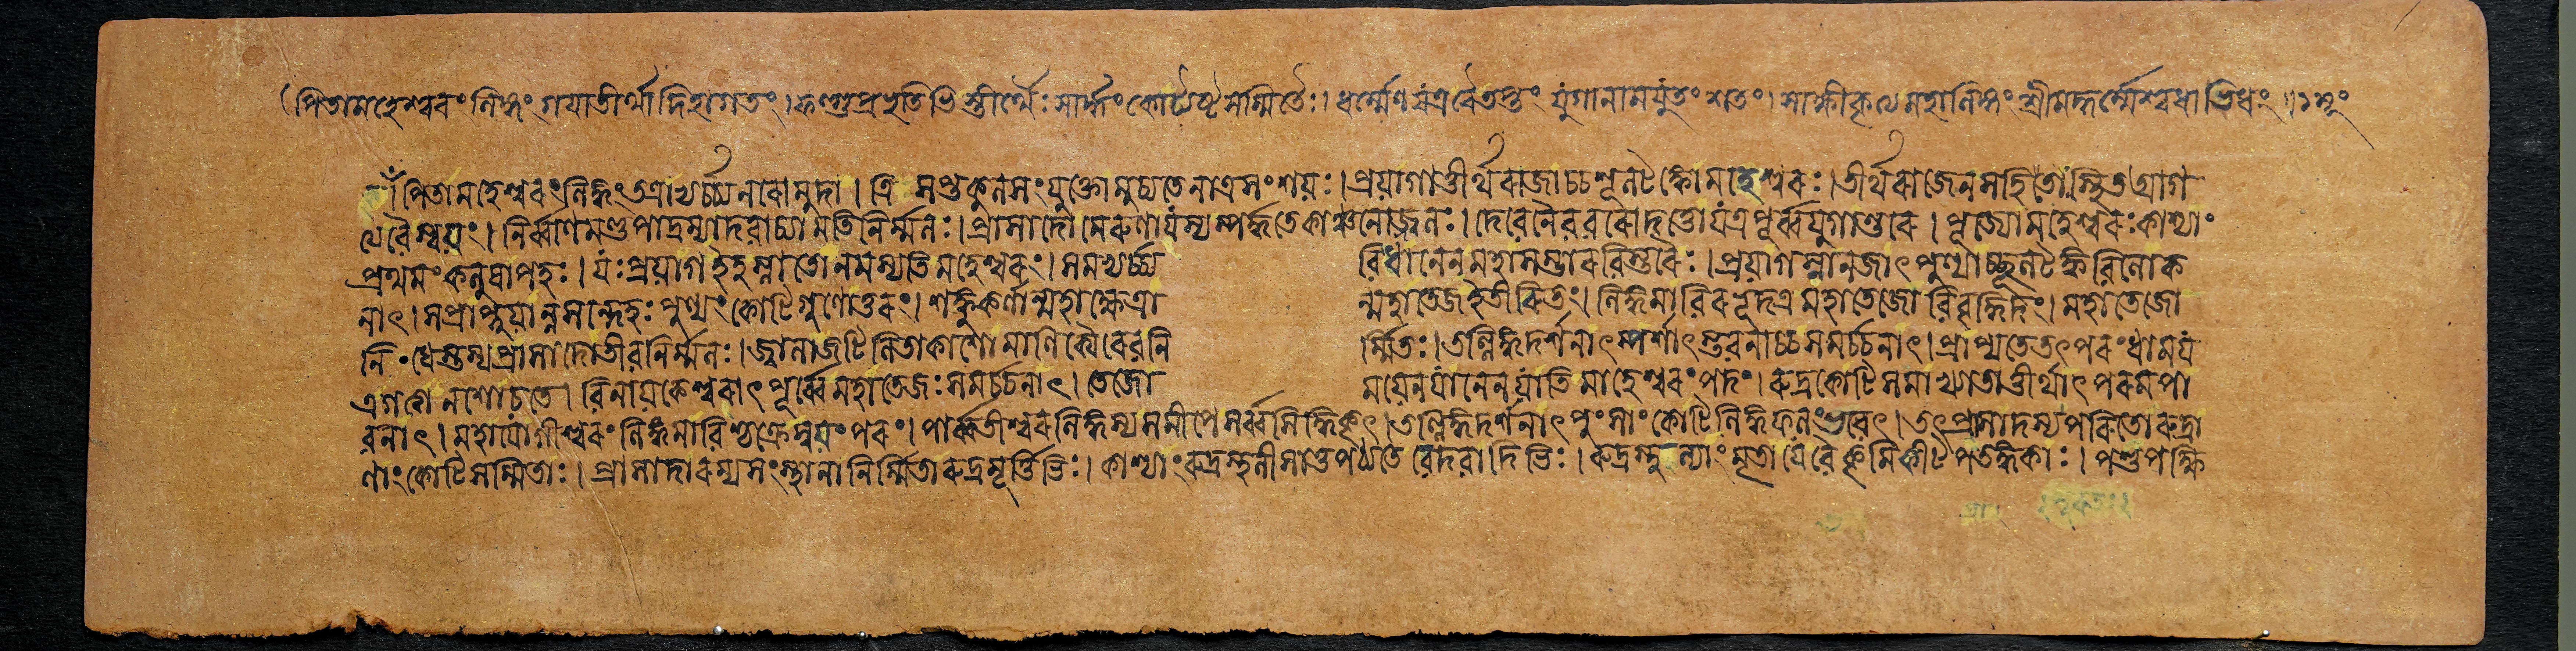 পিতামহেশ্বরং লিঙ্গং গয়াতীর্থাদিহাগতং। ফল্গুপ্রভৃতিভিস্তীর্থৈঃ সার্দ্ধং কোট্যষ্টসম্মিতৈঃ। ধর্ম্মেণ যত্র বৈ তপ্তং যুগানামযুতং শতং। সাক্ষীকৃত্য মহালিঙ্গং শ্রীমদ্ধর্ম্মেশ্বরাভিধং
পিতামহেশ্বরং লিঙ্গং তত্রাভ্যর্চ্চ্য নরো মুদা। ত্রিসপ্তকুলসংযুক্তো মুচ্যতে নাত্র সংশয়ঃ। প্রয়াগাত্তীর্থরাজাচ্চ শূলটঙ্কো মহেশ্বরঃ। তীর্থরাজেন সহিতঃ স্থিত আগ
ত্যে বৈ স্বয়ং। নির্ব্বাণমণ্ডপাদ্রম্যাদবাচ্যামতিনির্ম্মলঃ। প্রাসাদো মেরুণা যস্য স্পর্দ্ধতে কাঞ্চনোজ্জ্বলঃ। দেবেনৈব বরো দত্তো যত্র পূর্ব্বযুগান্তরে। পূজ্যো মহেশ্বরঃ কাশ্যাং
প্রথমং কলুষাপহঃ। যঃ প্রয়াগ ইহ স্নাতো নমস্যতি মহেশ্বরং। সমভ্যর্চ্চ্য বিধানেন মহাসম্ভারবিস্তরৈঃ। প্রয়াগস্নানজাৎ পুণ্যাচ্ছূলটঙ্কবিলোক
নাৎ। স প্রাপ্নুয়ান্ন সন্দেহঃ পুণ্যং কোটিগুণোত্তরং। শঙ্কুকর্ণান্মহাক্ষেত্রান্মহাতেজ ইতীরিতং। লিঙ্গমাবিরভূদত্র মহাতেজোবিবৃদ্ধিদং। মহাতেজো
নিধেস্তস্য প্রাসাদোতীবনির্ম্মলঃ। জ্বালাজটিলিতাকাশো মাণিক্যৈরেব নির্ম্মিতঃ। তল্লিঙ্গদর্শনাৎ স্পর্শাৎ স্তবনাচ্চ সমর্চ্চনাৎ। প্রাপ্যতে তৎপরং ধাম য
ত্র গত্বা ন শোচতে। বিনায়কেশ্বরাৎ পূর্ব্বে মহাতেজঃসমর্চ্চনাৎ। তেজোময়েন যানেন যাতি মাহেশ্বরং পদং। রুদ্রকোটিসমাখ্যাতাত্তীর্থাৎ পরমপা
বনাৎ। মহাযোগীশ্বরং লিঙ্গমাবিশ্চক্রে স্বয়ং পরং। পার্ব্বতীশ্বরলিঙ্গস্য সমীপে সর্ব্বসিদ্ধিকৃৎ। তল্লিঙ্গদর্শনাৎ পুংসাং কোটিলিঙ্গফলং ভবেৎ। তৎপ্রাসাদস্য পরিতো রুদ্রা
ণাং কোটিসম্মিতাঃ। প্রাসাদা রম্যসংস্থানা নির্ম্মিতা রুদ্রমূর্ত্তিভিঃ। কাশ্যাং রুদ্রস্থলী সা তু পঠ্যতে বেদবাদিভিঃ। রুদ্রস্থল্যাং মৃতা যে বৈ কৃমিকীটপতঙ্গকাঃ। পশুপক্ষি